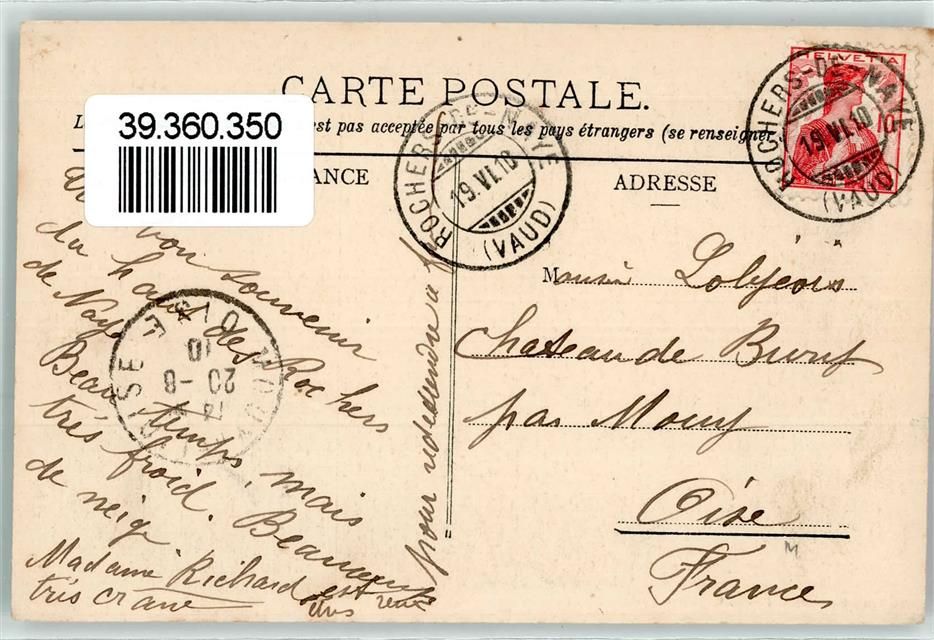 CARTE POSTALE.
39.360.350
est pas acceptée par tous les pays étrangers (se renseigner
ANCE
ADRESSE
HELVETIA
10
ROCHERS-DE-NAYE
19.VI.10
(VAUD)
ROCHERS-DE-NAYE
19.VI.10
(VAUD)
bon souvenir
du haut des Rochers
de Naye
Beau temps, mais
très froid. Beaucoup
de neige
Madame Richard est
très crane
pour redescendre à
OISE
10
20-6
14
M
Chateau de
par Mouy
Oise
France
M